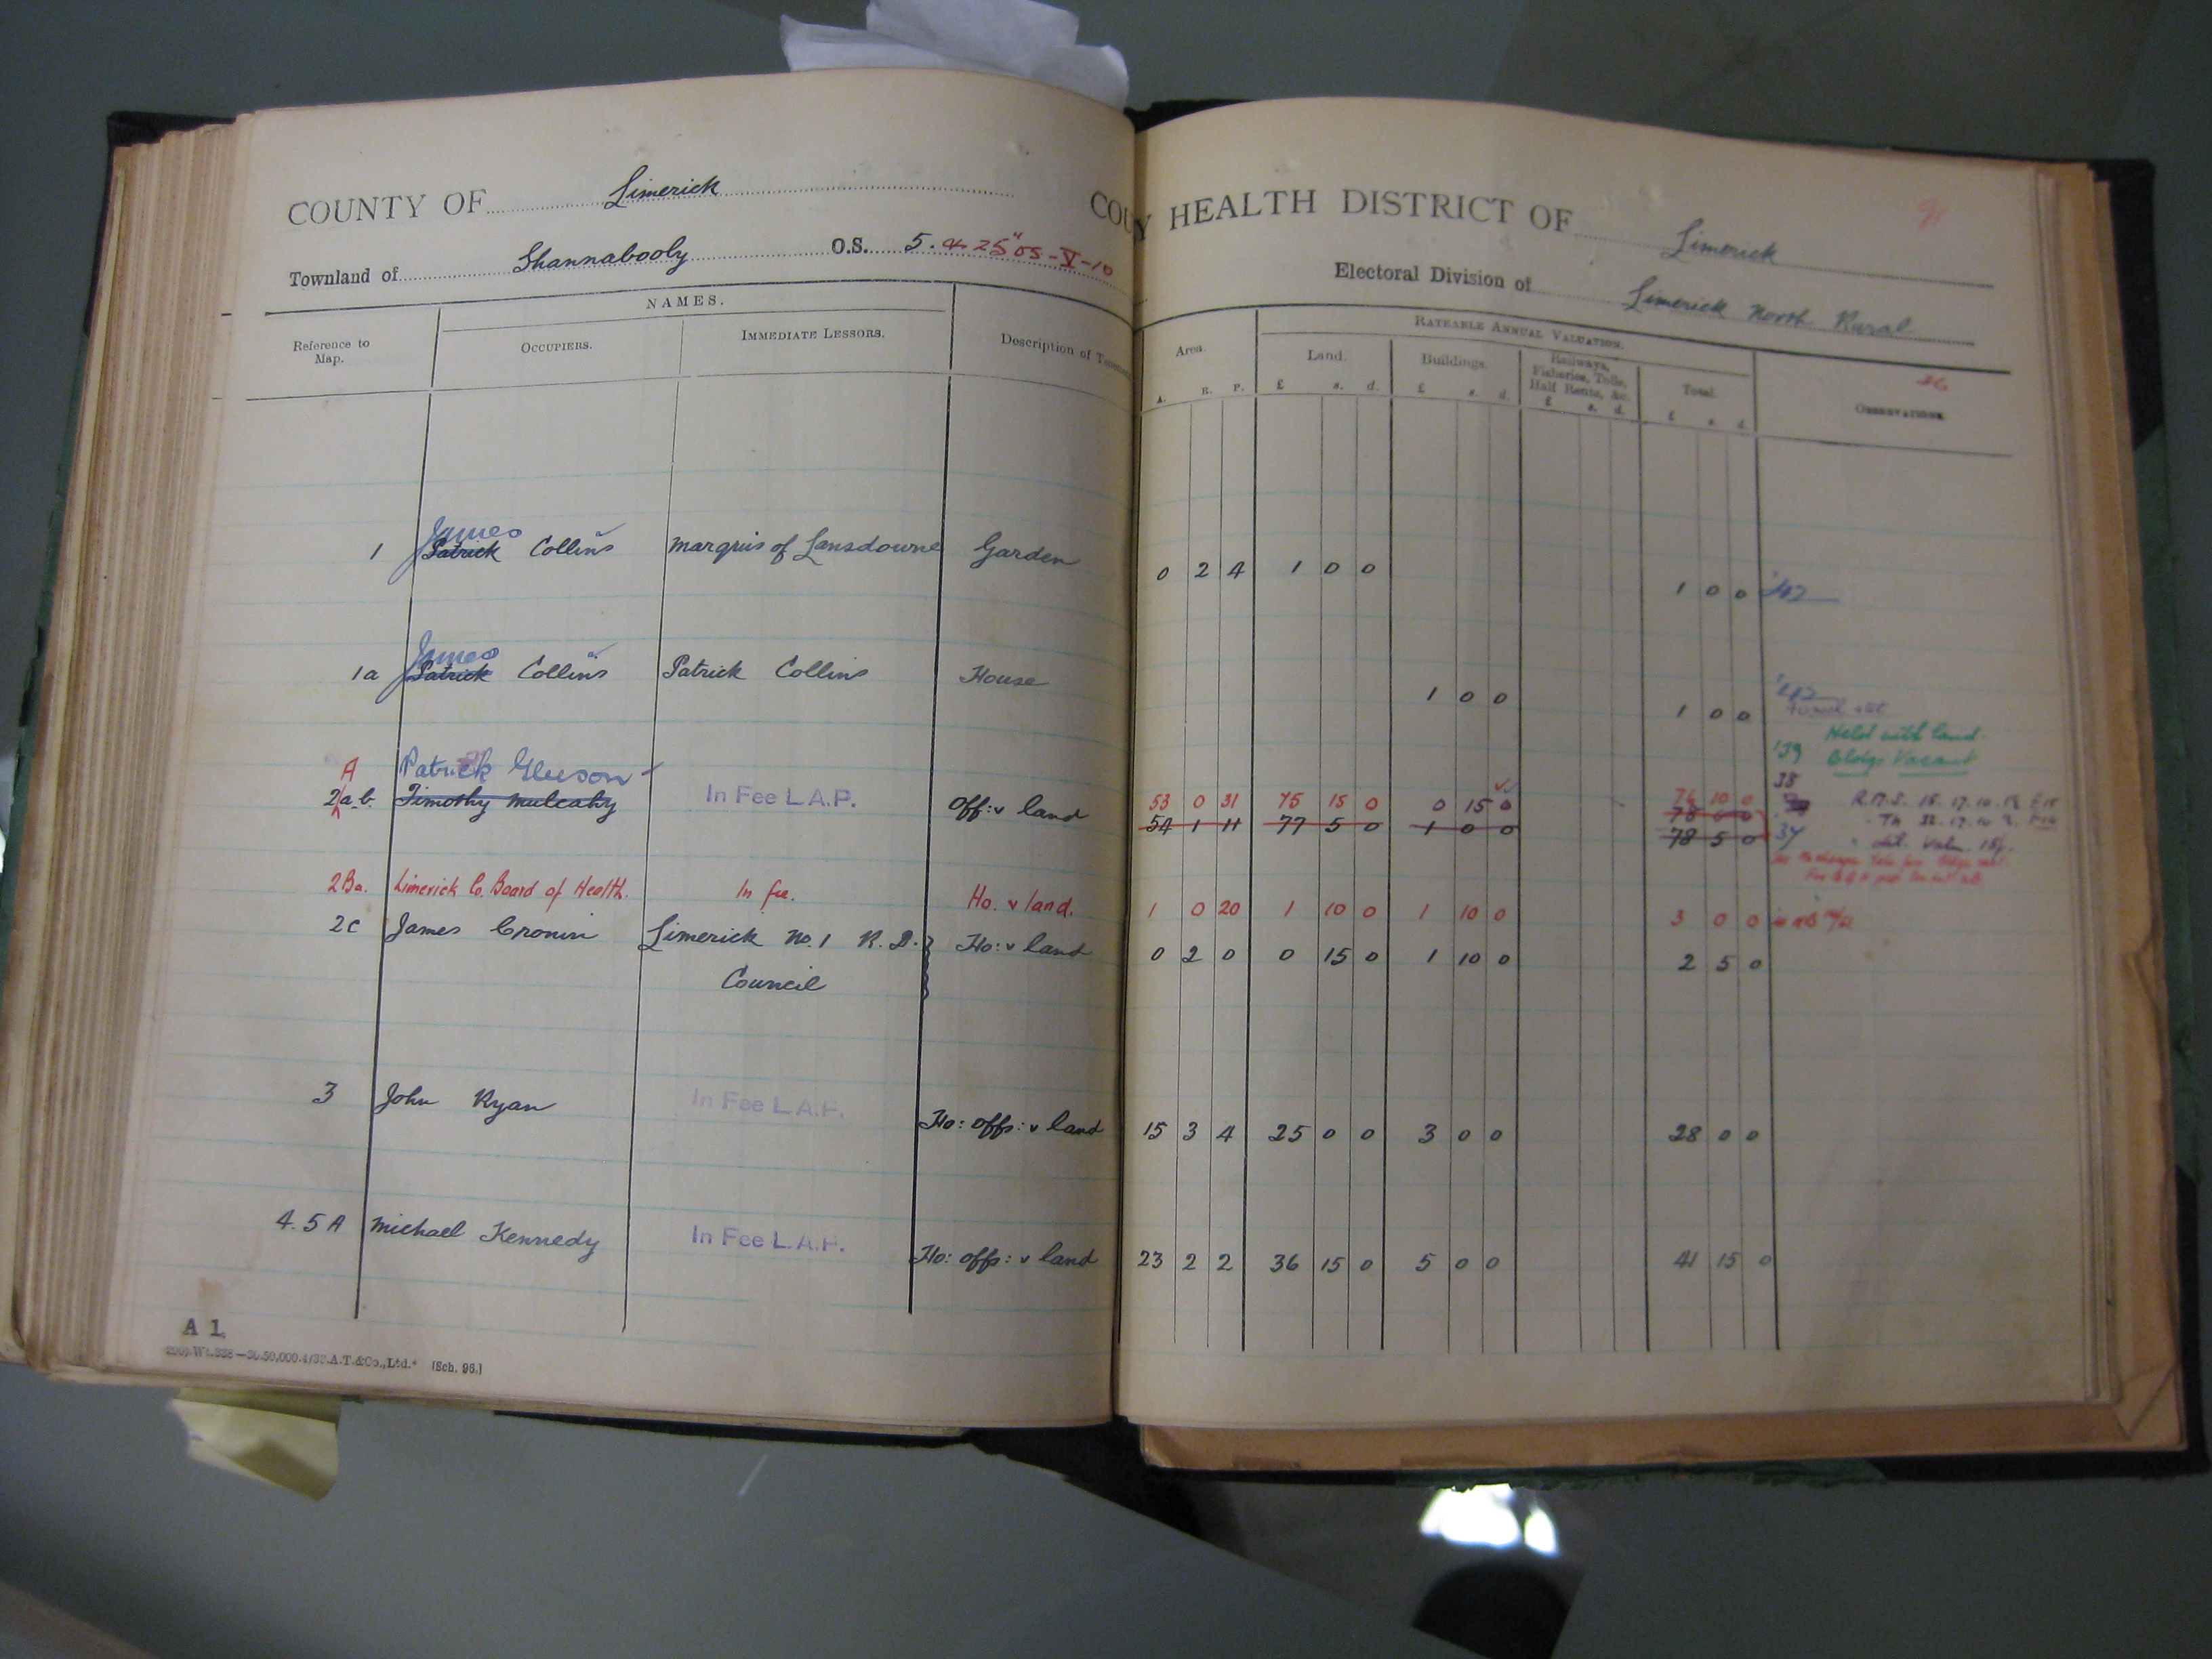 COUNTY OF Limerick
COUNTY HEALTH DISTRICT OF Limerick
91
Townland of Shannabooly O.S. 5. & 25" OS-V-10
Electoral Division of Limerick North Rural
NAMES.
RATEABLE ANNUAL VALUATION.
Reference to Map. OCCUPIERS. IMMEDIATE LESSORS. Description of Area. Land. Buildings. Railways, Fisheries, Tolls, Half Rents, &c. Total. OBSERVATIONS
26
A. R. P. £ s. d. £ s. d. £ s. d. £ s. d.
James
1 Patrick Collins Marquis of Lansdowne Garden 0 2 4 1 0 0 1 0 0 '42
James
1a Patrick Collins Patrick Collins House 1 0 0 1 0 0
Held with land.
'39 Bldgs Vacant
A Patrick Gleeson
2a-b Timothy Mulcahy In Fee L.A.P. Off: & land 53 0 31 75 15 0 0 15 0 76 10 0 38
54 1 11 77 5 0 1 0 0 78 0 0
78 5 0 37
2Ba. Limerick Co. Board of Health. In fee. Ho. & land. 1 0 20 1 10 0 1 10 0 3 0 0
2c James Cronin Limerick No. 1 R.D. Council Ho: & land 0 2 0 0 15 0 1 10 0 2 5 0
3 John Ryan In Fee L.A.P. Ho: offs: & land 15 3 4 25 0 0 3 0 0 28 0 0
4. 5A Michael Kennedy In Fee L.A.P. Ho: offs: & land 23 2 2 36 15 0 5 0 0 41 15 0
A 1.
A.T.&Co.,Ltd.* [Sch. 96.]